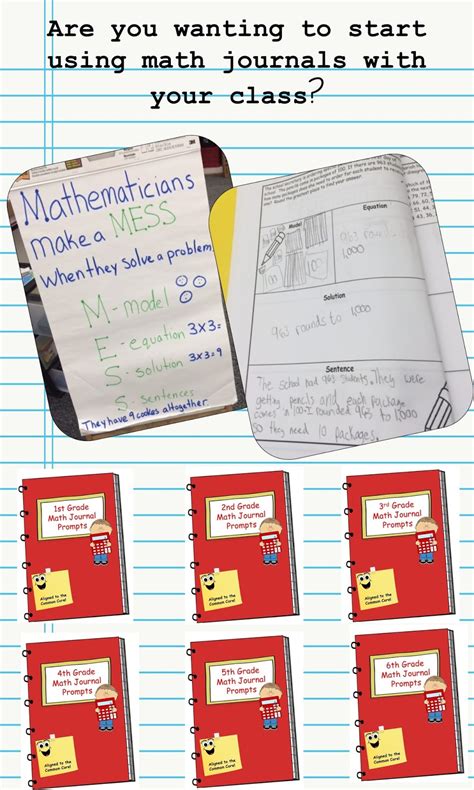 Are you wanting to start
using math journals with
your class?
Mathematicians
make a MESS
when they solve a problem
M - model
E - equation 3x3=
S - solution 3x3=9
S - sentences
They have 9 cookies altogether.
Model
Equation
963 rounds to
1,000
100
Solution
963 rounds to 1,000
Sentence
The school had 963 students. They were
getting pencils and each package
comes in 100. I rounded 963 to 1,000
so they need 10 packages.
1st Grade
Math Journal
Prompts
Aligned to the
Common Core!
2nd Grade
Math Journal
Prompts
Aligned to the
Common Core!
3rd Grade
Math Journal
Prompts
Aligned to the
Common Core!
4th Grade
Math Journal
Prompts
Aligned to the
Common Core!
5th Grade
Math Journal
Prompts
Aligned to the
Common Core!
6th Grade
Math Journal
Prompts
Aligned to the
Common Core!